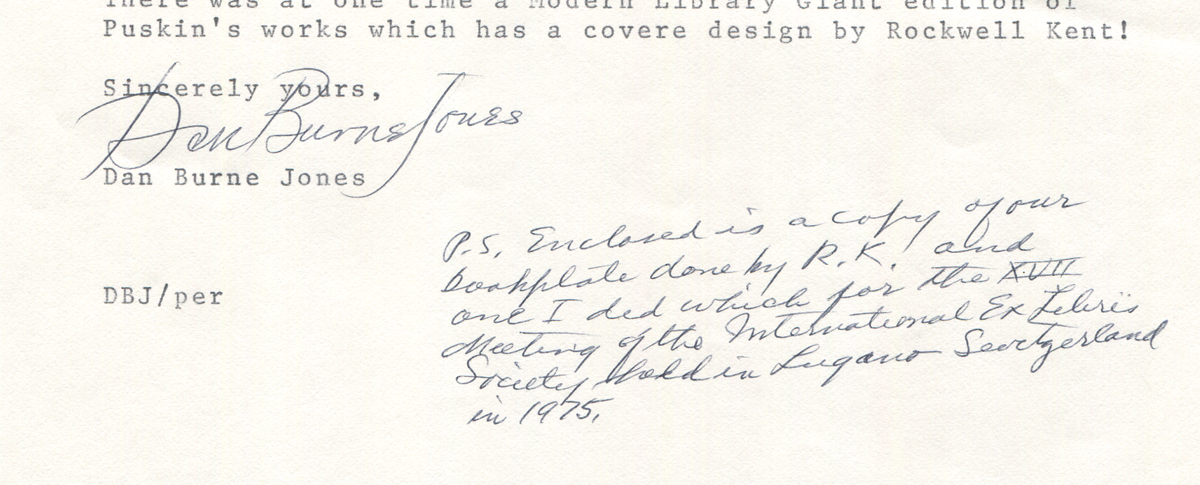 There was at one time a Modern Library Giant edition of
Puskin's works which has a covere design by Rockwell Kent!
Sincerely yours,
Dan Burne Jones
Dan Burne Jones
P.S. Enclosed is a copy of our
bookplate done by R.K.! and
one I did which for the XVII
Meeting of the International Ex Libris
Society held in Lugano Switzerland
in 1975.
DBJ/per